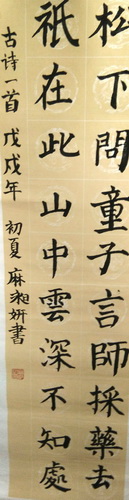 松下問童子言師採藥去
祇在此山中雲深不知處
古诗一首 戊戌年 初夏 麻湘妍書